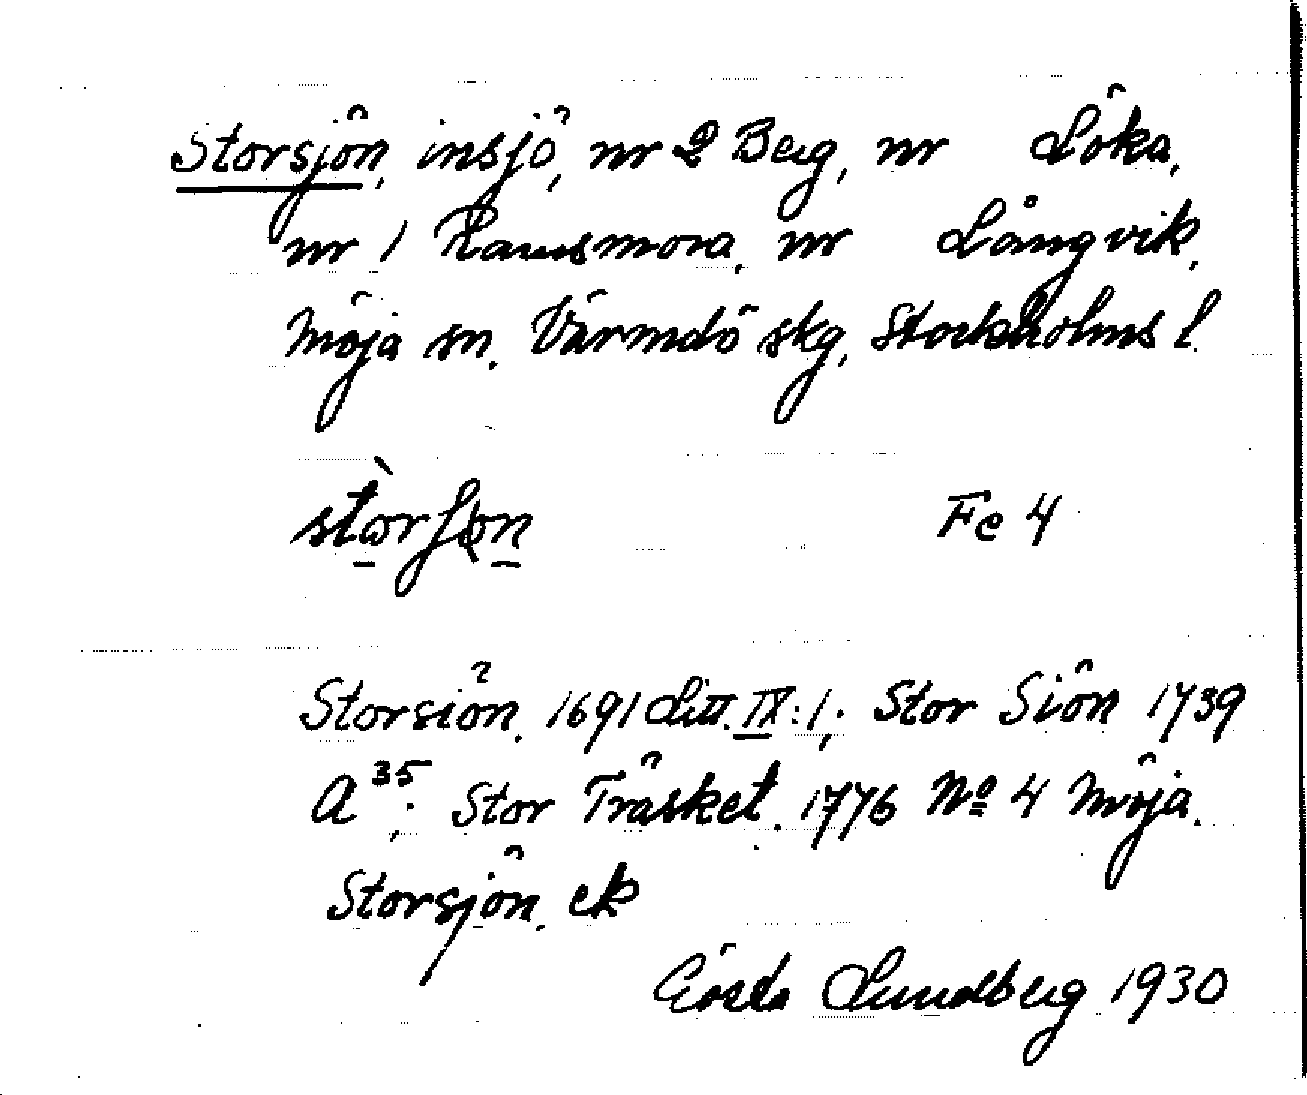 Storsjön, insjö, nr 2 Berg, nr Löka,
nr 1 Ramsmora, nr Långvik,
Möja sn. Värmdö skg, Stockholms l.
Fe 4
Storsiön. 1691 Litt. IX:1; Stor Siön 1739
A 35; Stor Träsket. 1776 No 4 Möja.
Storsjön. ek
Gösta Lundberg 1930